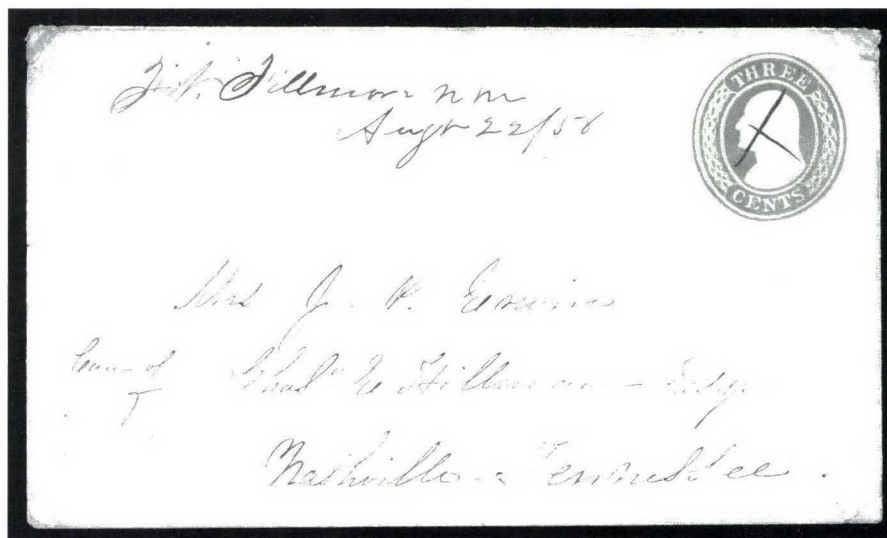 Ft. Fillmore N M
Augt 22/56
THREE
CENTS
Mrs J. P. Erwin
Care of Chas E Hillman Esqr
Nashville Tennessee.